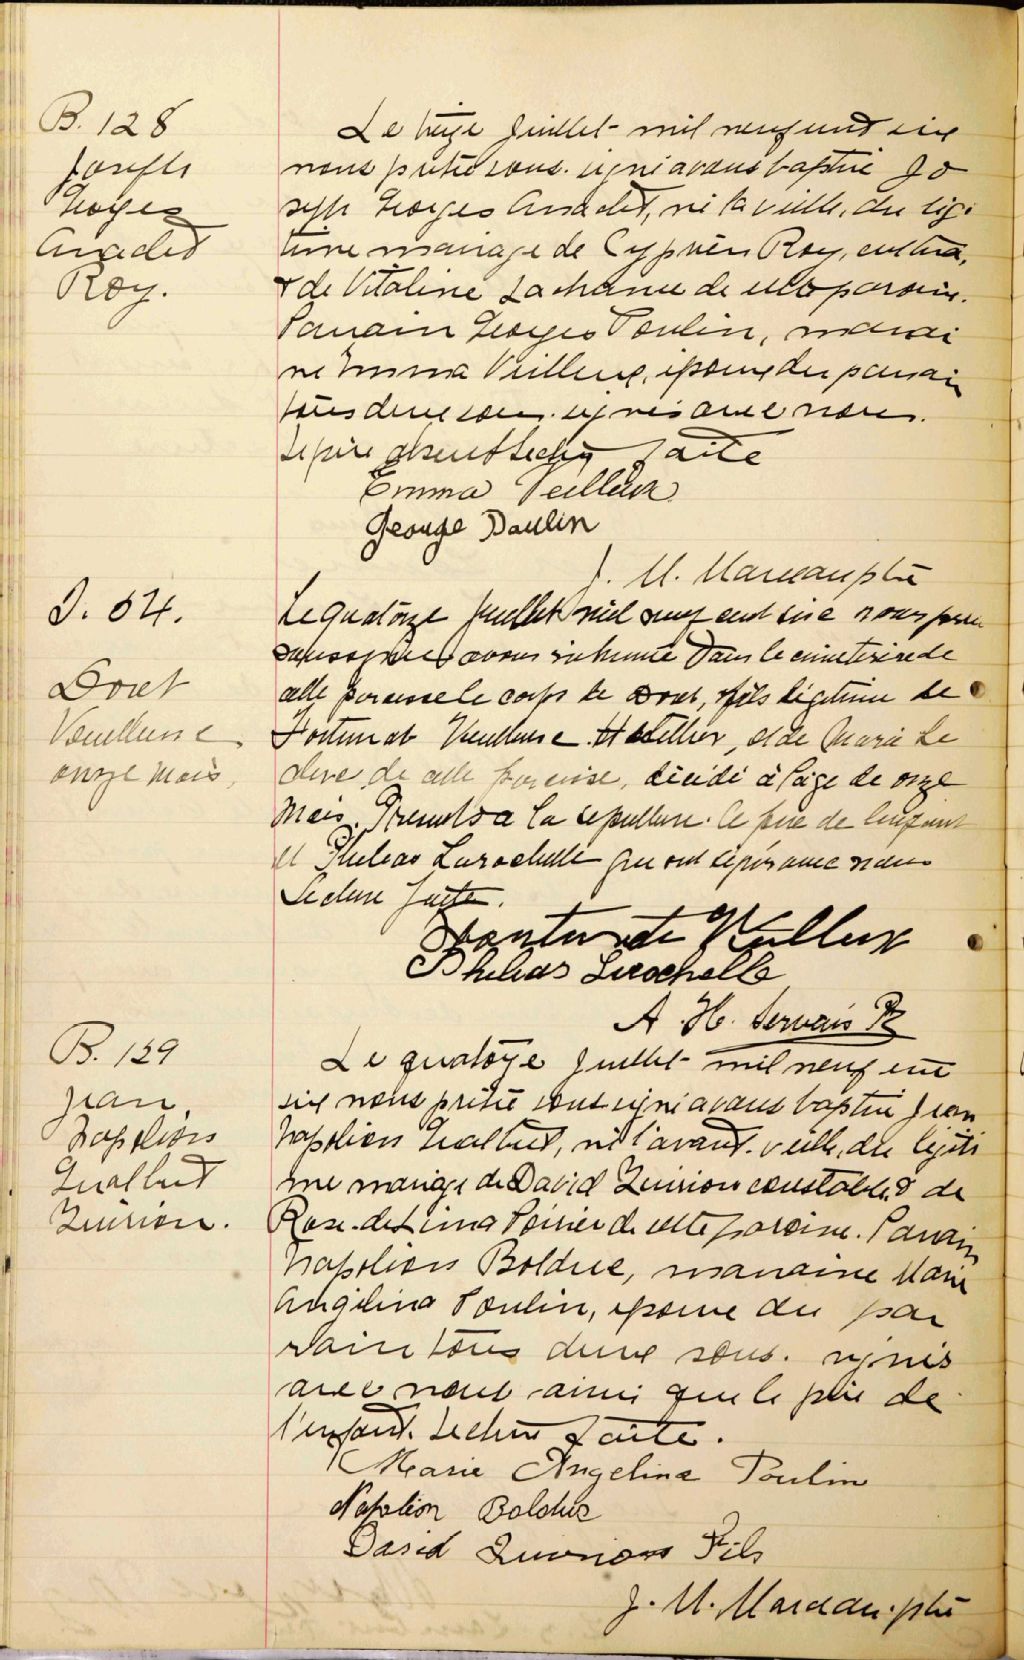 B. 128
Joseph
Georges
Amedet
Roy.
Le treize Juillet mil neuf cent six
nous prêtre sous-signé avons baptisé Jo
seph Georges Amedet, né la veille, du légi
time mariage de Cyprien Roy, cultiva.
& de Vitaline Lachance de cette paroisse.
Parrain Georges Poulin, marrai
ne Emma Veilleux, épouse du parrain
tous deux sous-signés avec nous.
Le père absent Lecture faite
Emma Veilleux
George Poulin
J. M. Marceau ptre
S. 54.
Doret
Veilleuse
onze mois,
Le quatorze Juillet mil neuf cent six nous pretre
soussigné avons inhumé dans le cimetiere de
cette paroisse le corps de Doret, fils légitime de
Fortunat Veilleuse Hotellier, et de Marie Le
clerc, de cette paroisse, décédé à l'age de onze
mois. Presents a la sepulture le père de l'enfant
et Phileas Larochelle qui ont signés avec nous
Lecture faite.
Fortunate Veilleux
Phileas Larochelle
A. H. Servais Ptr
B. 129
Jean,
Napoléon
Gualbert
Quirion.
Le quatorze Juillet mil neuf cent
six nous prêtre sous-signé avons baptisé Jean
Napoléon Gualbert, né l'avant-veille, du légiti
me mariage de David Quirion constable, & de
Rose-de-Lima Poirier de cette paroisse. Parrain
Napoléon Bolduc, marraine Marie
Angélina Poulin, épouse du par
rain tous deux sous-signés
avec nous ainsi que le père de
l'enfant. Lecture faite.
Marie Angelina Poulin
Napoléon Bolduc
David Quirion Fils
J. M. Marceau ptre